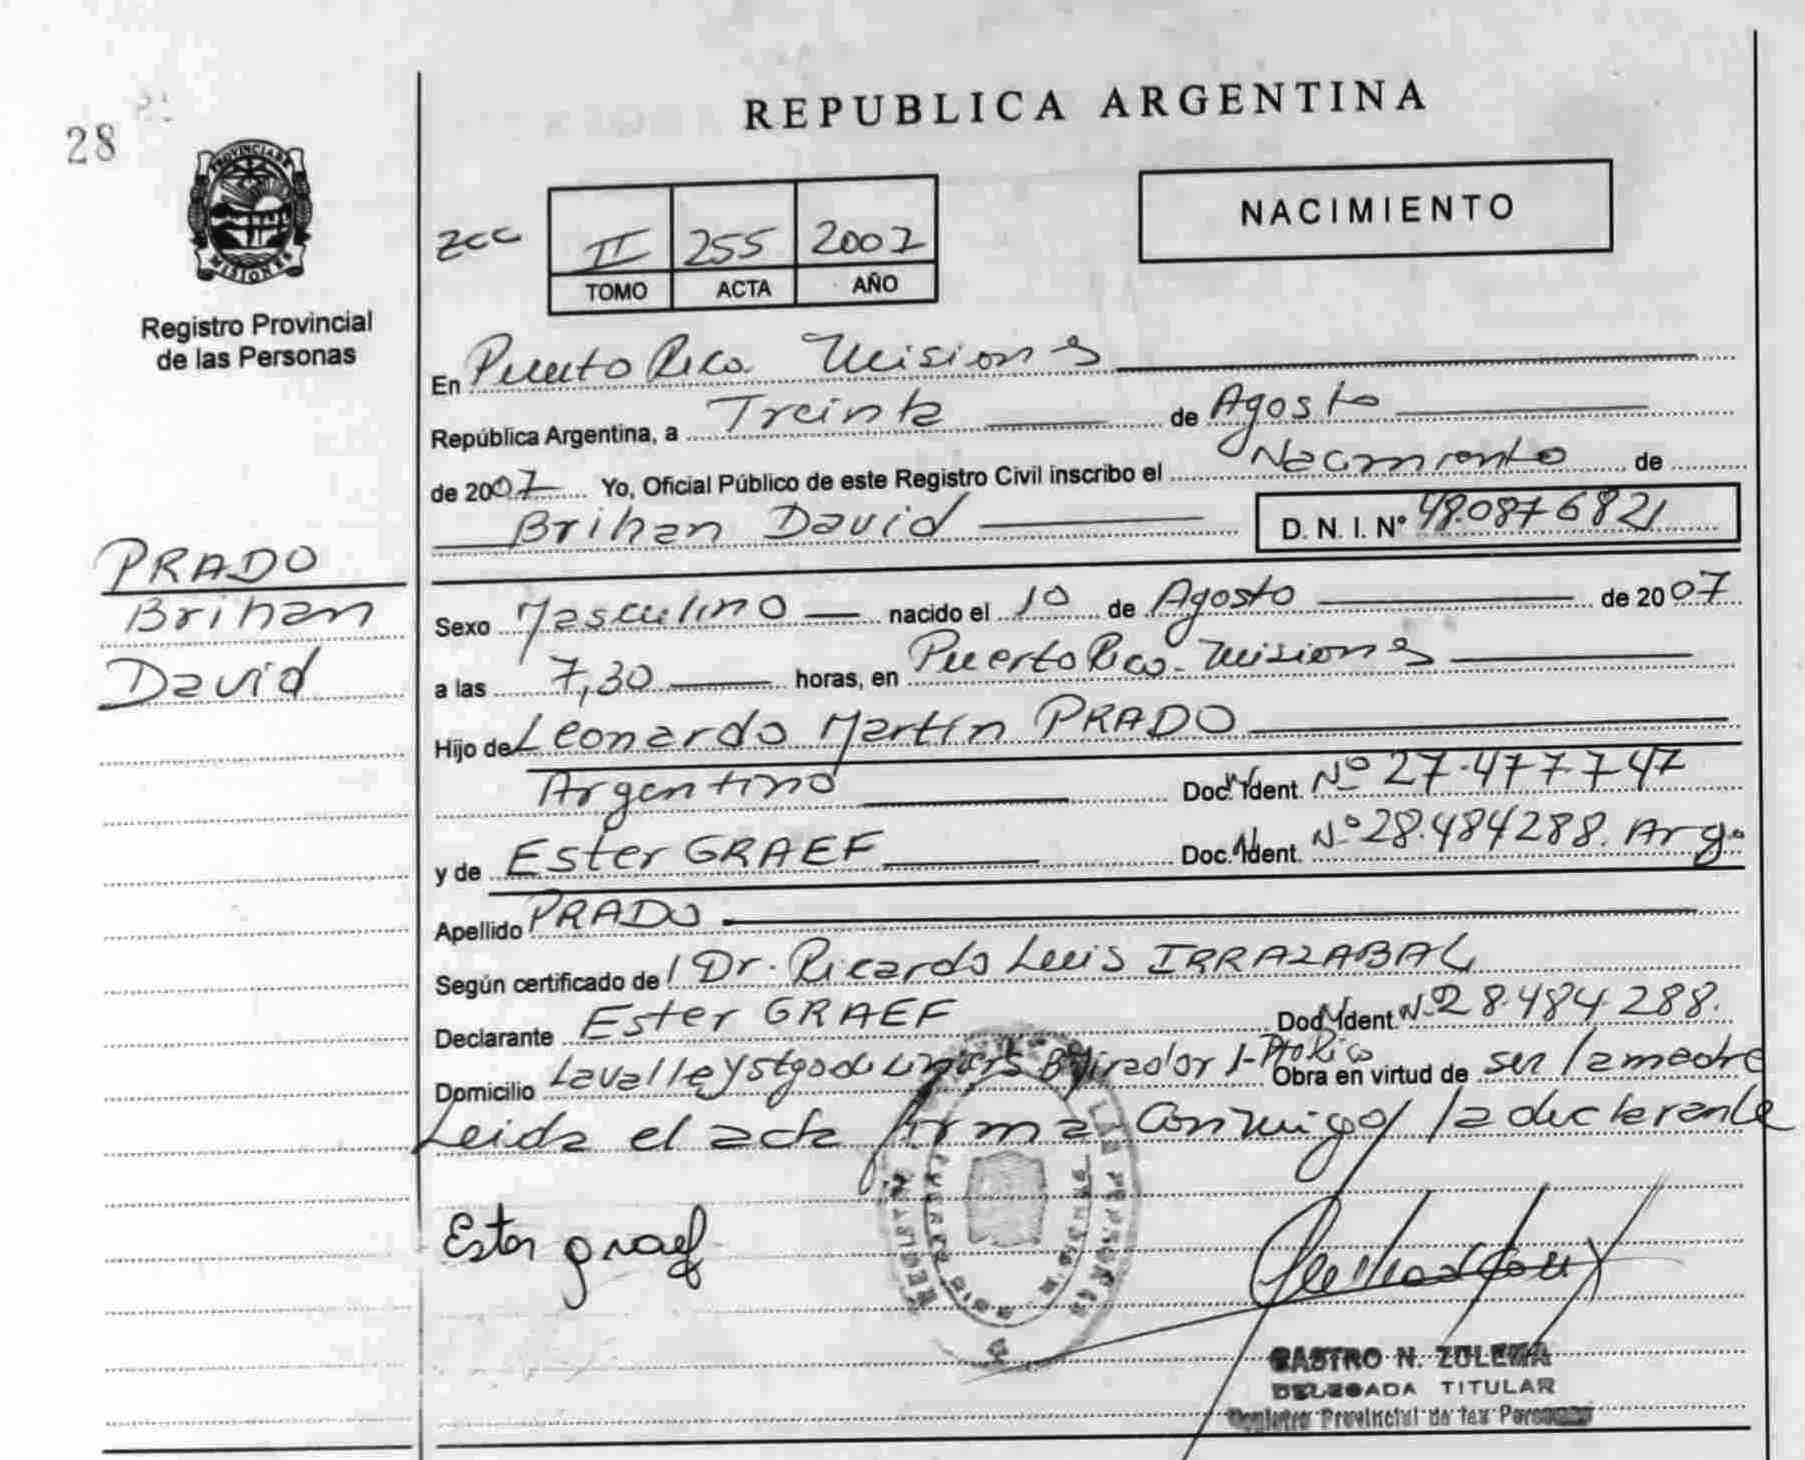 28
REPUBLICA ARGENTINA
PROVINCIA DE
MISIONES
Registro Provincial
de las Personas
NACIMIENTO
II 255 2007
TOMO ACTA AÑO
En Puerto Rico Misiones
República Argentina, a Treinta de Agosto
de 2007 Yo, Oficial Público de este Registro Civil inscribo el Nacimiento de
Brihan David D. N. I. Nº 48.0876821
PRADO
Brihan
David
Sexo Masculino nacido el 10 de Agosto de 2007
a las 7,30 horas, en Puerto Rico - Misiones
Hijo de Leonardo Martín PRADO
Argentino Doc. Ident. Nº 27.477747
y de Ester GRAEF Doc. Ident. Nº 28.484288. Arg.
Apellido PRADO
Según certificado de Dr. Ricardo Luis IRRAZABAL
Declarante Ester GRAEF Doc. Ident. Nº 28.484288.
Domicilio Lavalle y Stgo de Liniers Bº Mirador 1- Pto Rico Obra en virtud de ser la madre
Leida el acta firma conmigo la declarante
Ester graef
CASTRO N. ZULEMA
DELEGADA TITULAR
Registro Provincial de las Personas